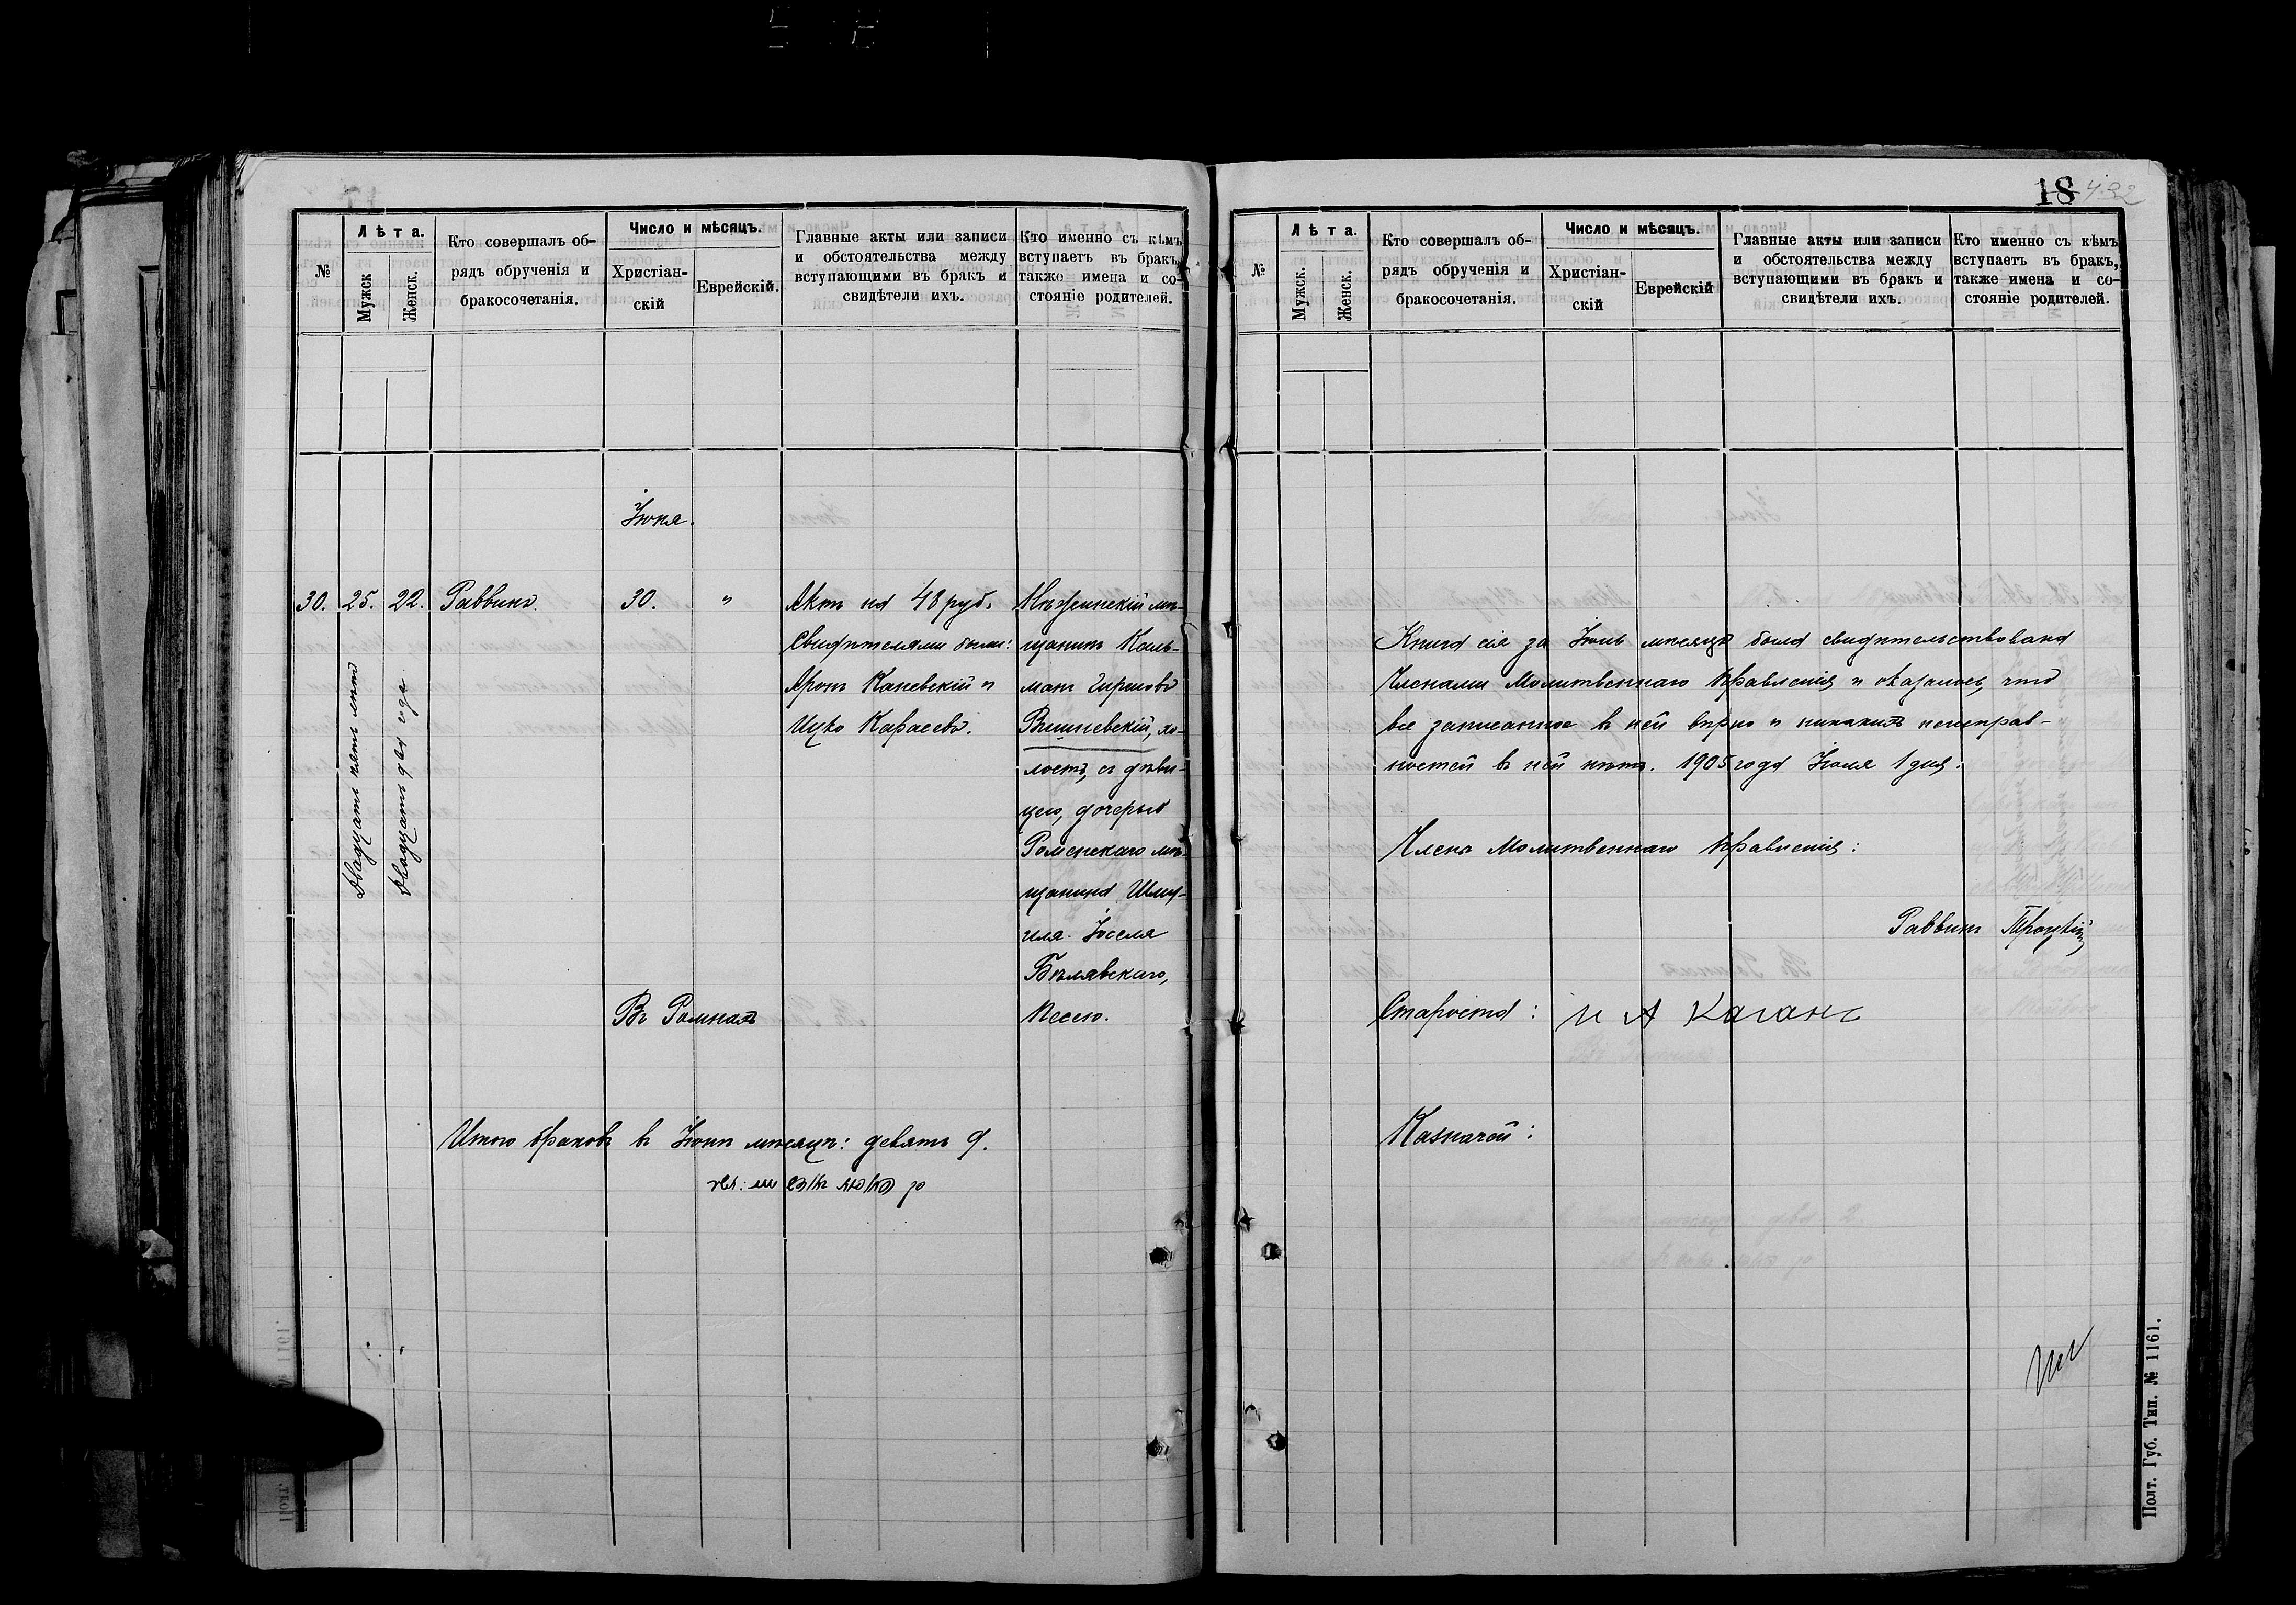 №
Лѣта.
Мужск
Женск.
Кто совершалъ об-
рядъ обрученія и
бракосочетанія.
Число и мѣсяцъ.
Христіан-
скій
Еврейскій.
Главные акты или записи
и обстоятельства между
вступающими въ бракъ и
свидѣтели ихъ.
Кто именно съ кѣмъ
вступаетъ въ бракъ,
также имена и со-
стояніе родителей.
Іюня.
30. 25. 22. Раввинъ. 30. "
Двадцать пять лѣтъ
Двадцать два года
Актъ на 48 руб.
Свидѣтелями были:
Аронъ Каневскій и
Ицко Карасевъ.
Нѣжинскій мѣ-
щанинъ Каль-
манъ Гиршовъ
Вишневскій, хо-
лостъ, съ дѣви-
цею, дочерью
Роменскаго мѣ-
щанина Шму-
иля-Іоселя
Бѣлявскаго,
Песею.
Въ Ромнахъ
Итого браковъ въ Іюнѣ мѣсяцѣ: девять 9.
18 432
№
Лѣта.
Мужск.
Женск.
Кто совершалъ об-
рядъ обрученія и
бракосочетанія.
Число и мѣсяцъ.
Христіан-
скій
Еврейскій
Главные акты или записи
и обстоятельства между
вступающими въ бракъ и
свидѣтели ихъ.
Кто именно съ кѣмъ
вступаетъ въ бракъ,
также имена и со-
стояніе родителей.
Книга сія за Іюнь мѣсяцъ была свидѣтельствована
Членами Молитвеннаго Правленія и оказалось, что
все записанное въ ней вѣрно и никакихъ неисправ-
ностей въ ней нѣтъ. 1905 года Іюля 1 дня.
Члены Молитвеннаго Правленія:
Раввинъ Троцкій
Староста: И А Каганъ
Казначей:
Полт. Губ. Тип. № 1161.